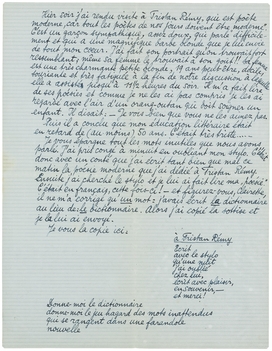 Hier soir j'ai rendu visite à Tristan Rémy, qui est poète
moderne, car tout les poètes de nos jours doivent être modernes.
C'est un garçon sympathique, assez doux, qui parle difficile-
ment et qui a une magnifique barbe blonde que je lui envie
de tout mon cœur. J'ai fait son portrait qu'on trouvait fort
ressemblant, même sa femme le trouvait à son goût!
est une très charmante petite blonde, 19 ans peut-être, étudie,
souriante et très fatiguée à la fin de notre discussion
elle a assisté jusqu'à 11½ heures du soir. Il m'a fait lire
de ses poèmes et comme je ne les ai pas compris je les ai
regardé avec l'air d'un orang-outan qui doit soigner un
enfant. Il disait: — Je vois bien que vous ne les aimez pas
Puis il a conclu que mon éducation littéraire était
en retard de (au moins) 50 ans. C'était très triste....
Je vous épargne tout les mots inutiles que nous avons
parlé. J'ai pris congé à minuit en oubliant mon stylo. C'était
donc avec un conté que j'ai écrit tant bien que mal ce
matin la poésie moderne que j'ai dédié à Tristan Rémy.
Ensuite j'ai cherché le stylo et je lui ai fait lire ma "poésie"
C'était en français, cette fois-ci! — et figurez-vous, Clairette,
il ne m'a corrigé qu'un mot: j'avais écrit la dictionnaire
au lieu de le dictionnaire. Alors j'ai copié la sottise et
je la lui ai envoyé.
Je vous la copie ici:
à Tristan Rémy
Ecrit
avec le stylo
qu'une nuit
j'ai oublié
chez lui,
écrit avec plaisir,
en souvenir —
et merci!
Donne-moi le dictionnaire
donne-moi le jeu hagard des mots inattendus
qui se rangent dans une farandole
nouvelle